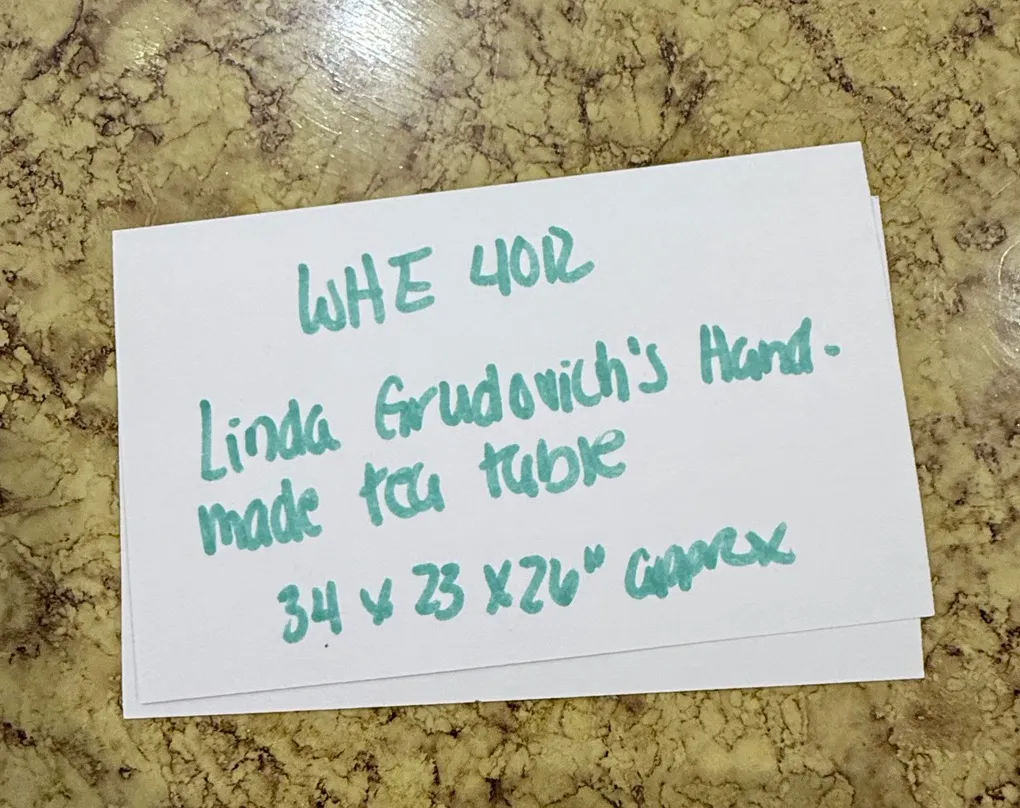 WHE 402
Linda Grudovich's Hand-
made tea table
34 x 23 x 26" approx